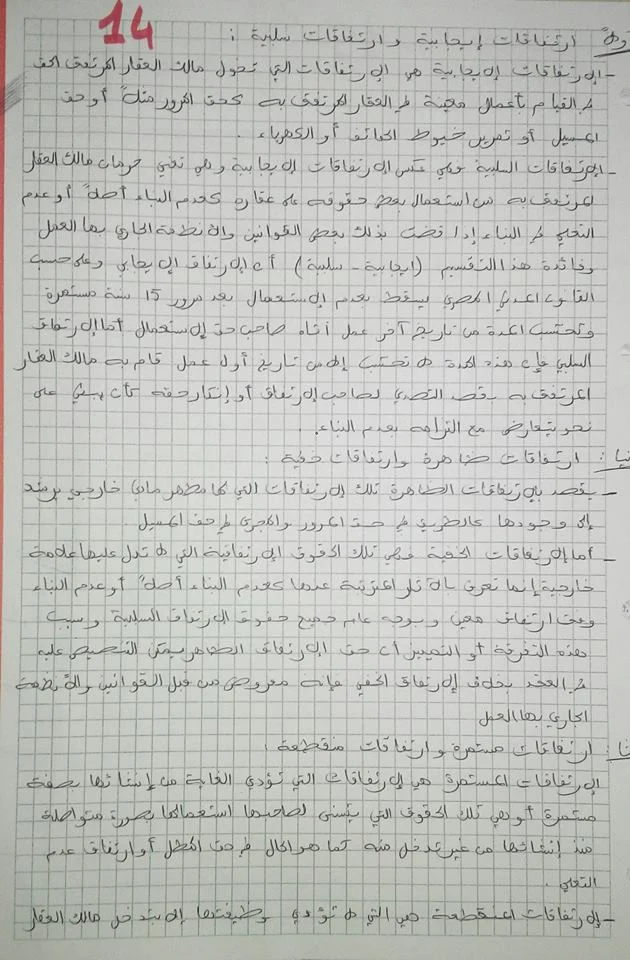 14
أولاً ارتفاقات إيجابية وارتفاقات سلبية :
- الارتفاقات الايجابية هي الارتفاقات التي تخول مالك العقار المرتفق الحق
في القيام بأعمال معينة في العقار المرتفق به كحق المرور مثلاً أو حق
المسيل أو تمرير خيوط الهاتف أو الكهرباء .
- الارتفاقات السلبية فهي عكس الارتفاقات الايجابية وهي تعني حرمان مالك العقار
المرتفق به من استعمال بعض حقوقه على عقاره كعدم البناء أصلاً أو عدم
التعلي في البناء إذا قضت بذلك بعض القوانين والانظمة الجاري بها العمل
وفائدة هذا التقسيم (ايجابية - سلبية) أن الارتفاق الايجابي وعلى حسب
القانون المدني المصري يسقط بعدم الاستعمال بعد مرور 15 سنة مستمرة
وتحتسب المدة من تاريخ آخر عمل أتاه صاحب حق الاستعمال أما الارتفاق
السلبي فإن هذه المدة لا تحتسب إلا من تاريخ أول عمل قام به مالك العقار
المرتفق به بقصد التصدي لصاحب الارتفاق أو إنكار حقه كأن يبني على
نحو يتعارض مع التزامه بعدم البناء.
ثانيا : ارتفاقات ظاهرة وارتفاقات خفية :
- يقصد بالارتفاقات الظاهرة تلك الارتفاقات التي لها مظهر مادي خارجي يرشد
إلى وجودها كالطريق في حق المرور والمجرى في حق المسيل.
- أما الارتفاقات الخفية فهي تلك الحقوق الارتفاقية التي لا تدل عليها علامة
خارجية إنما تعرف بالآثار المترتبة عنها كعدم البناء أصلاً أو عدم البناء
وفق ارتفاق معين وبوجه عام جميع حقوق الارتفاق السلبية وسبب
هذه التفرقة أو التمييز أن حق الارتفاق الظاهر يمكن التنصيص عليه
في العقد بخلاف الارتفاق الخفي فإنه مفروض من قبل القوانين والأنظمة
الجاري بها العمل
ثالثا : ارتفاقات مستمرة وارتفاقات منقطعة :
الارتفاقات المستمرة هي الارتفاقات التي تؤدي الغاية من إنشائها بصفة
مستمرة أو هي تلك الحقوق التي يتسنى لصاحبها استعمالها بصورة متواصلة
منذ إنشائها من غير تدخل منه كما هو الحال في حق المطل أو ارتفاق عدم
التعلي .
- الارتفاقات المنقطعة هي التي لا تؤدي وظيفتها إلا بتدخل مالك العقار